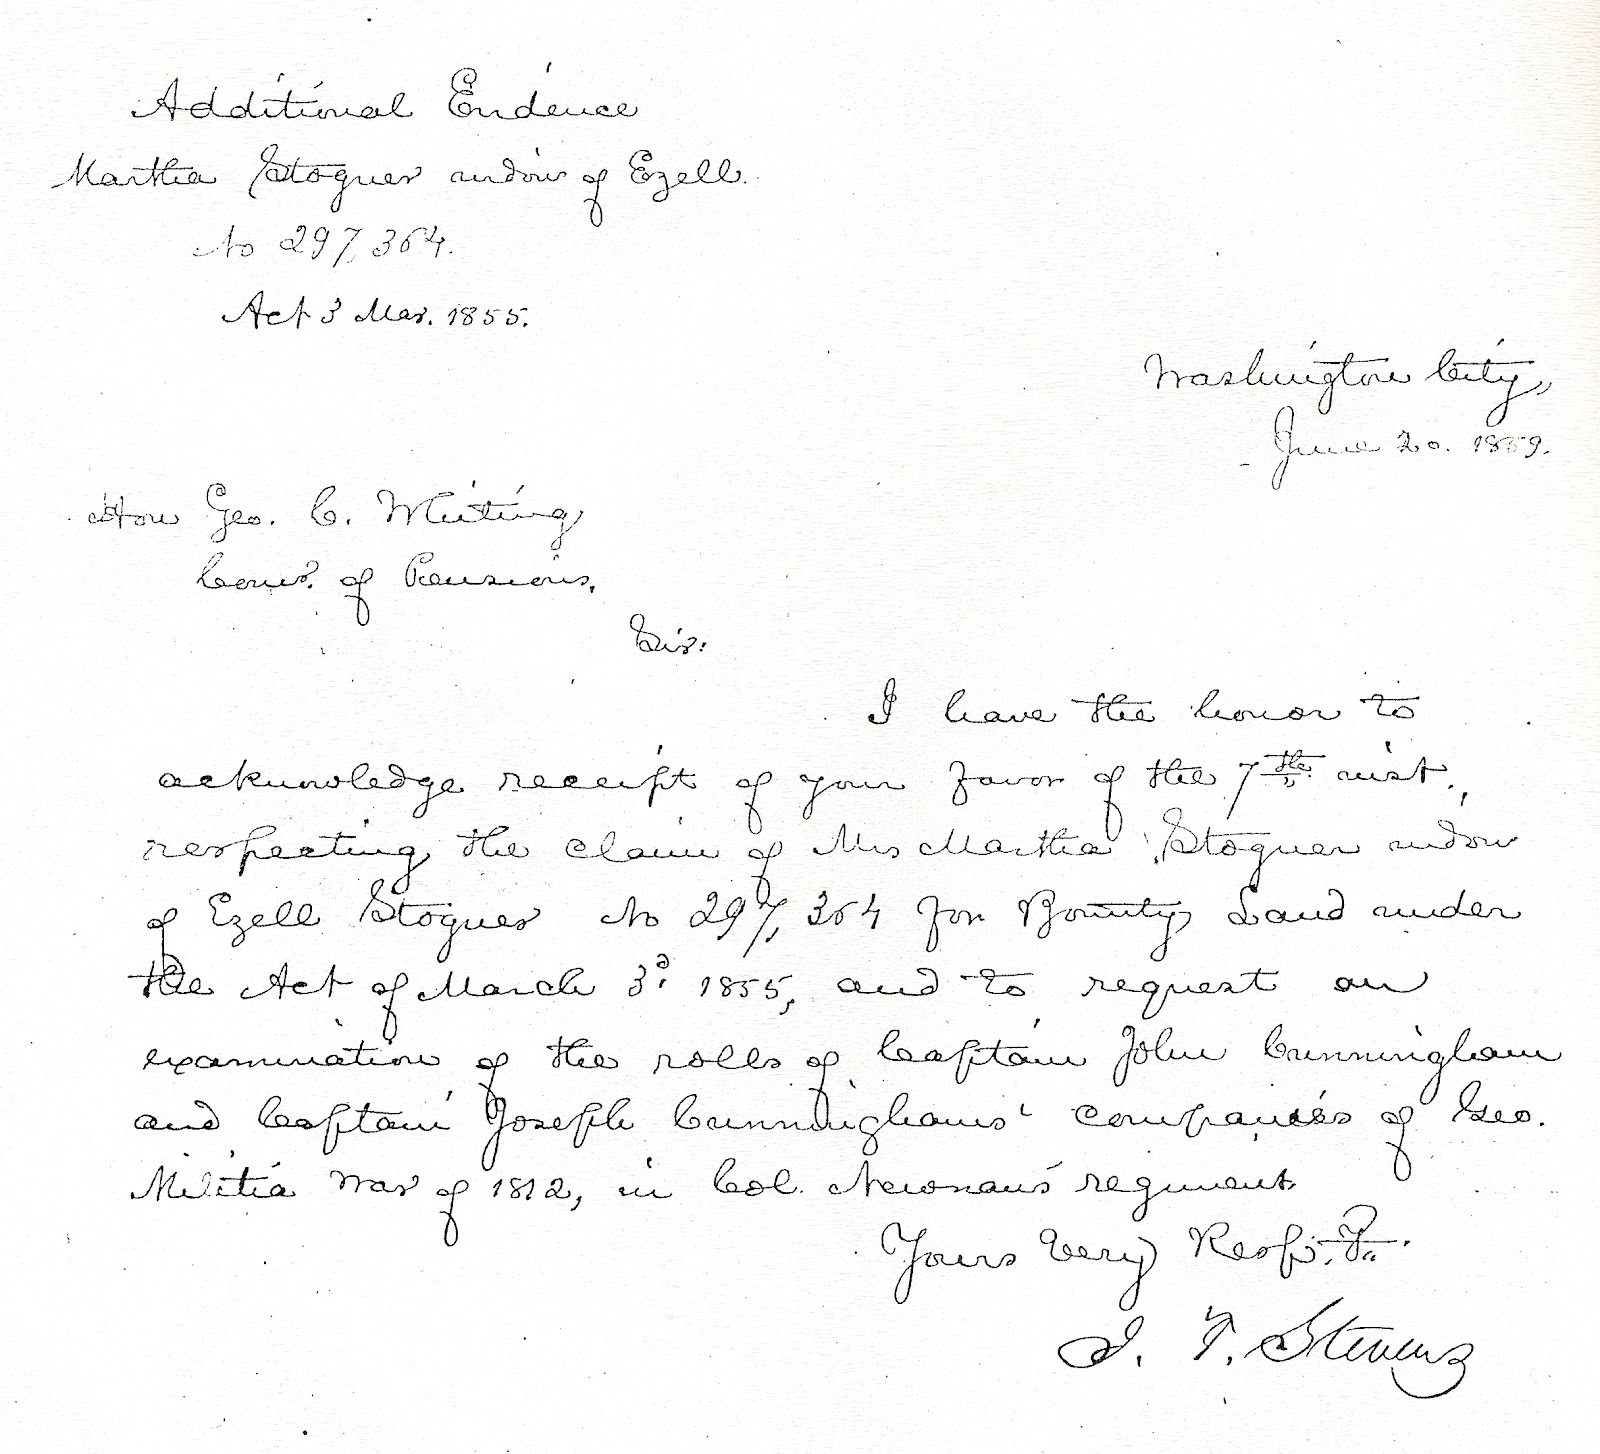 Additional Evidence
Martha Stoguer widow of Ezell.
No 297,364.
Act 3 Mar. 1855.
Washington City,
June 20. 1859.
Hon Geo. C. Whiting
Comr. of Pensions.
Sir:
I have the honor to
acknowledge receipt of your favor of the 7th inst.,
respecting the claim of Mrs Martha Stoguer widow
of Ezell Stoguer No 297,364 for Bounty Land under
the Act of March 3d 1855, and to request an
examination of the rolls of Captain John Cunningham
and Captain Joseph Cunninghams' companies of Geo.
Militia War of 1812, in Col. Newnan's regiment
Yours Very Resp.
T. Stevens